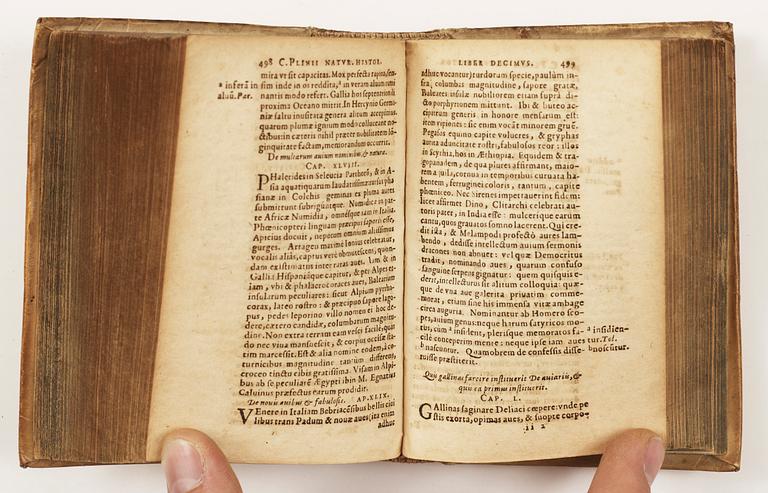 498 C. PLINII NATVR. HISTOI.
mira vt sit capacitas. Mox perfecta rapina, sen-
sim inde in os reddita, ª in veram alium rumi
ª inferā in
aluū. Par.
nantis modo refert. Gallia hos septentrionali
proxima Oceano mittit. In Hercynio Germa-
niæ saltu inusitata genera alitum accepimus,
quarum plumæ ignium modo colluceant no-
ctibus: in cæteris nihil præter nobilitatem lō-
ginquitate factam, memorandum occurrit.
De multarum auium nominib. & natura.
CAP. XLVIII.
PHalerides in Seleucia Parthorū, & in A-
sia aquatiquarum laudatissimæ: rursus pha
sianæ in Colchis geminas ex pluma aures
submittunt subriguntque. Numidicæ in par-
te Africæ Numidia, omnésque iam in Italia.
Phœnicopteri linguam præcipui saporis esse,
Apicius docuit, nepotum omnium altissimus
gurges. Attagen maximè Ionius celebratur,
vocalis aliàs, captus verò obmutescens, quon-
dam existimatus inter raras aues. Iam & in
Gallia Hispaniáque capitur, & per Alpes et-
iam, vbi & phalacrocoraces aues, Balearium
insularum peculiares: sicut Alpium pyrrho-
corax, luteo rostro: & præcipuo sapore lago-
pus, pedes leporino villo nomen ei hoc de-
dere, cætero candidæ, columbarum magnitu-
dine. Non extra terram eam vesci facile, quā-
do nec viua mansuescit, & corpus occisæ sta-
tim marcessit. Est & alia nomine eodem, à co-
turnicibus magnitudine tantùm differens,
croceo tinctu cibis gratissima. Visam in Alpi-
bus ab se peculiarē Ægypti ibin M. Egnatius
Caluinus præfectus earum prodidit.
De nouis auibus & fabulosis. CAP. XLIX.
VEnere in Italiam Bebriacensibus bellis ciui
libus trans Padum & nouæ aues (ita enim
adhuc
LIBER DECIMVS. 499
adhuc vocantur) turdorum specie, paulùm in-
fra columbas magnitudine, sapore gratæ,
Baleares insulæ nobiliorem etiam suprà di-
cto porphyrionem mittunt. Ibi & buteo ac-
cipitrum generis in honore mensarum est:
item vipiones: sic enim vocāt minorem gruē.
Pegasos equino capite volucres, & gryphas
aurea aduncitate rostri, fabulosos reor: illos
in Scythia, hos in Æthiopia. Equidem & tra-
gopana dem, de qua plures affirmant, maio-
rem aquila, cornua in temporibus curuata ha-
bentem, ferruginei coloris, tantum, capite
phœniceo. Nec Sirenes impetrauerint fidem:
licet affirmet Dino, Clitarchi celebrati au-
toris pater, in India esse: mulcerique earum
cantu, quos grauatos somno lacerent. Qui cre-
dit ista, & Melampodi profectò aures lam-
bendo, dedisse intellectum auium sermonis
dracones non abnuet: vel quæ Democritus
tradit, nominando aues, quarum confuso
sanguine serpens gignatur: quem quisquis e-
derit, intellecturus sit alitum colloquia: quæ-
que de vna aue galerita priuatim comme-
morat, etiam sine his immensa vitæ ambage
circa auguria. Nominantur ab Homero sco-
pes, auium genus: neque harum satyricos mo-
tus, cùm ª insident, plerisque memoratos fa-
ª insidien-
cilè conceperim mente: neque ipsæ iam aues
tur. Tol.
b nascuntur. Quamobrem de confessis disse-
b noscūtur.
ruisse præstiterit.
Quis gallinas farcire instituerit. De auiariis, &
quis ea primus instituerit.
CAP. L.
GAllinas saginare Deliaci cœpere: vnde pe
stis exorta, opimas aues, & suopte corpo-
ii 2